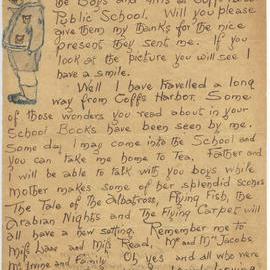 the Boys and Girls at Coffs Harbor
Public School. Will you please
give them my thanks for the nice
present they sent me. If you
look at the picture you will see I
have a smile.
Well I have travelled a long
way from Coffs Harbor. Some
of those wonders you read about in your
School Books have been seen by me.
Some day I may come into the School and
you can take me home to Tea. Father and
I will be able to talk with you boys while
Mother makes some of her splendid scones
The Tale of the Albatross, Flying Fish, the
Arabian Nights and The Flying Carpet will
all have a new setting. Remember me to
Miss and Miss Read, Mr and Mrs Jacobs
Mr Irvine and Family. Oh yes and all who were